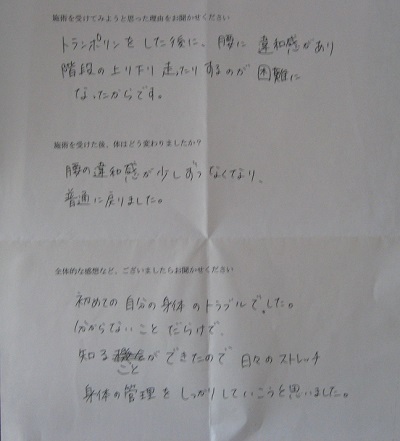 施術を受けてみようと思った理由をお聞かせください
トランポリンをした後に、腰に違和感があり
階段の上り下り走ったりするのが困難に
なったからです。
施術を受けた後、体はどう変わりましたか？
腰の違和感が少しずつなくなり、
普通に戻りました。
全体的な感想など、ございましたらお聞かせください
初めての自分の身体のトラブルでした。
分からないことだらけで、
知ることができたので日々のストレッチ
身体の管理をしっかりしていこうと思いました。